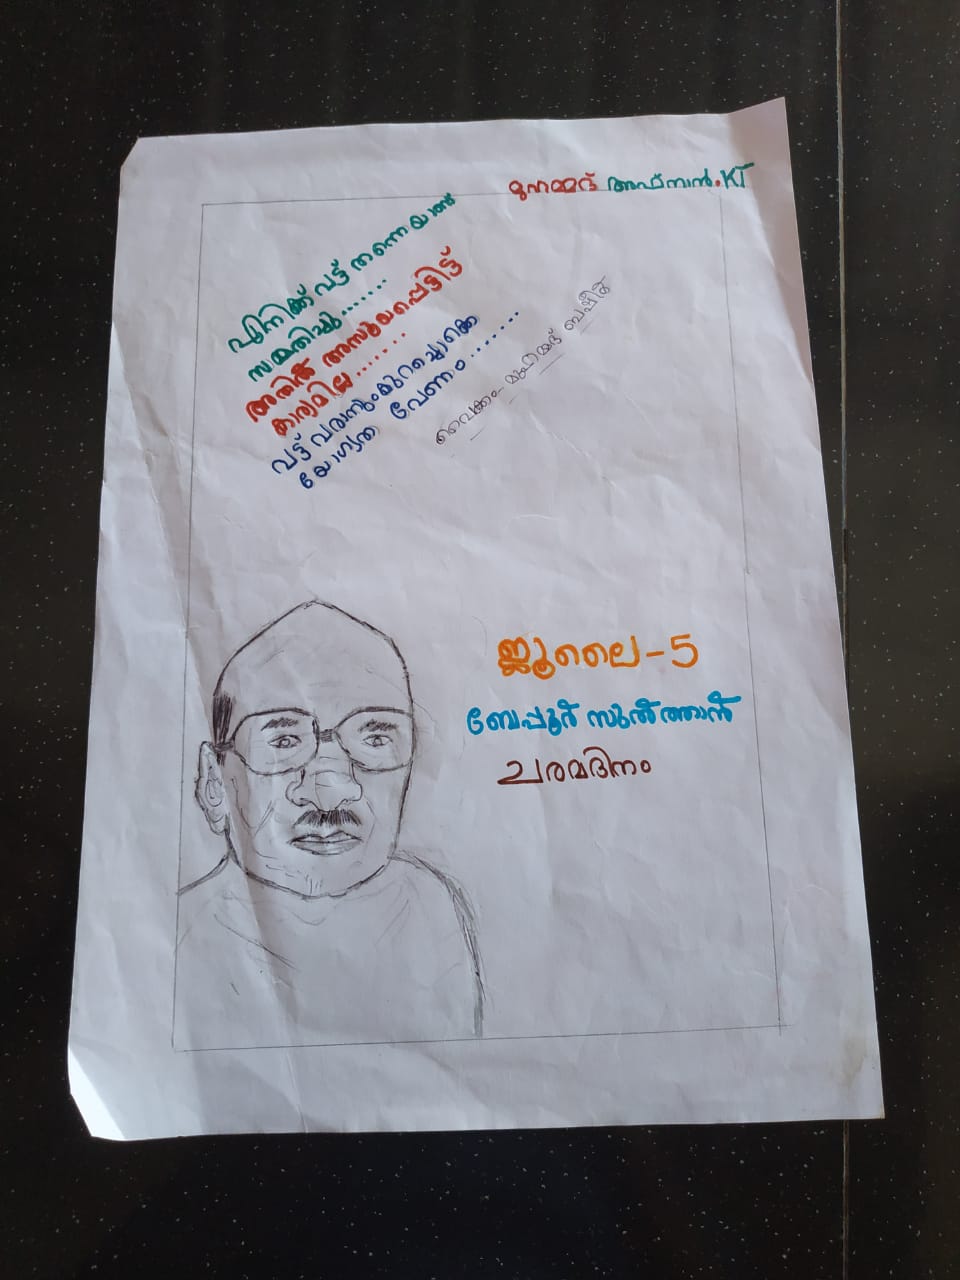 മുഹമ്മദ് അഫ്നാൻ.KT
എനിക്ക് വട്ട് തന്നെയാണ്
സമ്മതിച്ചു.......
അതിൽ അസൂയപ്പെട്ടിട്ട്
കാര്യമില്ല.......
വട്ട് വരാനുംകുറച്ചൊക്കെ
യോഗ്യത വേണം.......
വൈക്കം മുഹമ്മദ് ബഷീർ
ജൂലൈ-5
ബേപ്പൂർ സുൽത്താൻ
ചരമദിനം